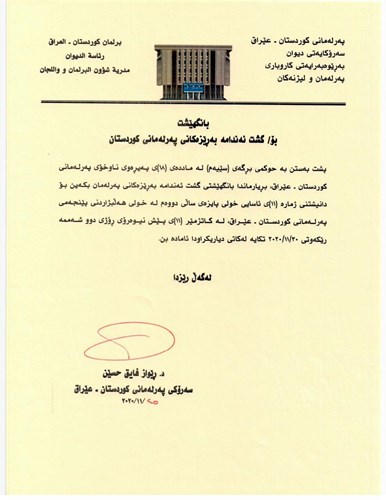 پەرلەمانی کوردستان ـ عێراق
سەرۆکایەتی دیوان
بەڕێوەبەرایەتی کاروباری
پەرلەمان و لیژنەکان
برلمان كوردستان ـ العراق
رئاسة الديوان
مديرية شؤون البرلمان واللجان
بانگهێشت
بۆ/ گشت ئەندامە بەڕێزەکانی پەرلەمانی کوردستان
پشت بەستن بە حوکمی بڕگەی (سێیەم) لە ماددەی (١٨)ی پەیڕەوی ناوخۆی پەرلەمانی
کوردستان ـ عێراق، بڕیارماندا بانگهێشتی گشت ئەندامە بەڕێزەکانی پەرلەمان بکەین بۆ
دانیشتنی ژمارە (١١)ی ئاسایی خولی پایزەی ساڵی دووەم لە خولی هەڵبژاردنی پێنجەمی
پەرلەمانی کوردستـان ـ عێـراق، لـە کـاتژمێر (١١)ی پـێش نیـوەڕۆی ڕۆژی دوو شـەممە
رێکەوتی ٢٠٢٠/١١/٣٠ تکایە لەکاتی دیاریکراودا ئامادە بن.
لەگەڵ رێزدا
د. ڕێواز فایق حسێن
سەرۆکی پەرلەمانی کوردستان ـ عێراق
٢٠٢٠/١١/